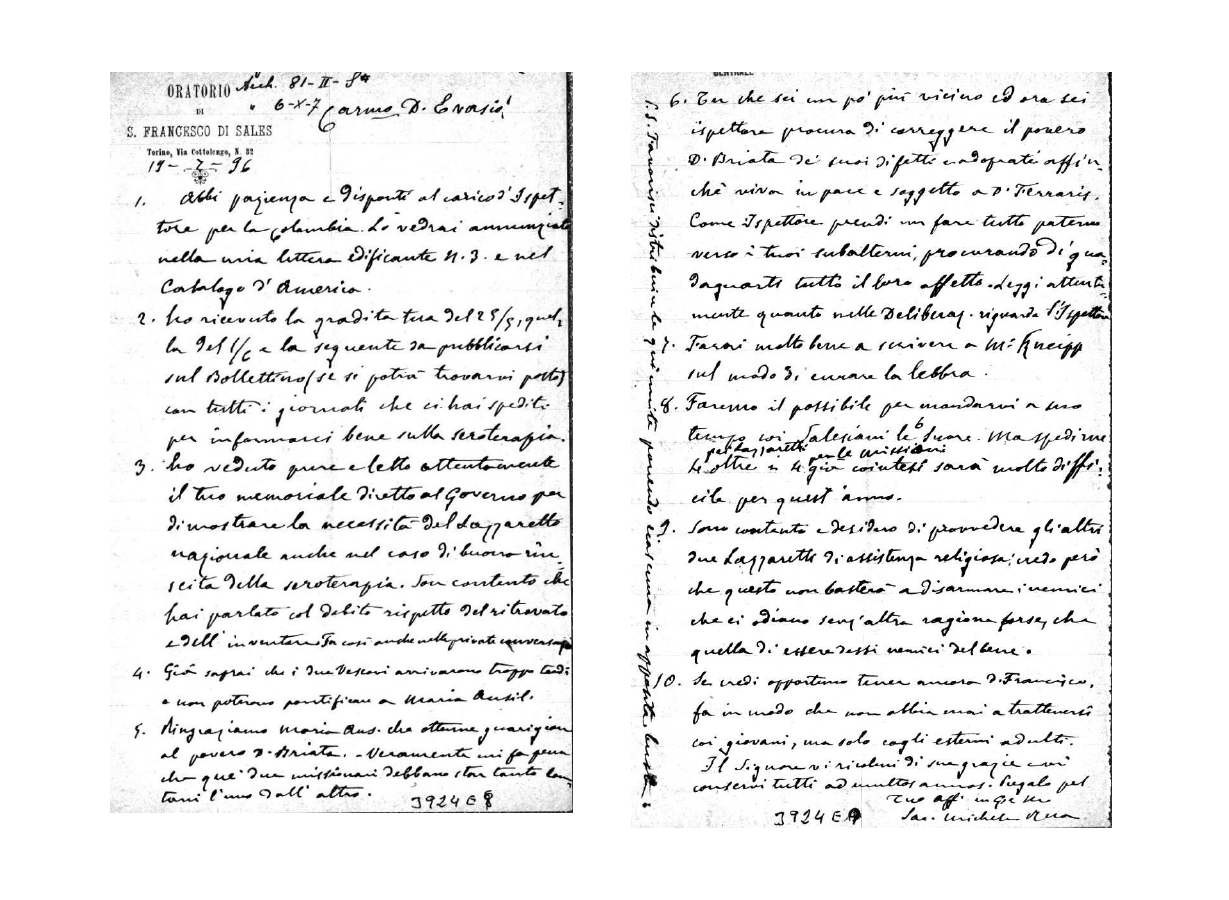 ORATORIO
DI
S. FRANCESCO DI SALES
Torino, Via Cottolengo, N. 32
19 - 7 - 96
Arch. 81-II-8a
" 6-X-7
Carmo D. Evasio
1. Abbi pazienza e disponti al carico d'Ispet-
tore per la Colombia. Lo vedrai annunziato
nella mia lettera edificante N. 3. e nel
Catalogo d'America.
2. Ho ricevuto la gradita tua del 25/5, quel-
la del 1/6 e la seguente da pubblicarsi
sul Bollettino (se si potrà trovarvi posto)
con tutti i giornali che ci hai spediti
per informarci bene sulla seroterapia.
3. Ho veduto pure e letto attentamente
il tuo memoriale diretto al Governo per
dimostrare la necessità del Lazzaretto
nazionale anche nel caso di buona riu-
scita della seroterapia. Son contento che
hai parlato col debito rispetto del ritrovato
e dell'inventore. Fa così anche nelle private conversaz.
4. Già saprai che i due Vescovi arrivarono troppo tardi
e non poterono pontificare a Maria Ausil.
5. Ringraziamo Maria Aus. che ottenne guarigione
al povero D. Briata. - Veramente mi fa pena
che que' due missionari debbano star tanto lon-
tani l'uno dall'altro.
3924 E 8
6. Tu che sei un po' più vicino ed ora sei
ispettore procura di correggere il povero
D. Briata de' suoi difetti e adoprati affin-
chè viva in pace e soggetto a D. Ferraris.
Come Ispettore prendi un fare tutto paterno
verso i tuoi subalterni, procurando di gua-
dagnarti tutto il loro affetto. Leggi attenta-
mente quanto nelle Deliberaz. riguarda l'Ispettore
7. Farai molto bene a scrivere a Mr. Kneipp
sul modo di curare la lebbra.
8. Faremo il possibile per mandarvi a suo
tempo coi Salesiani le 6 Suore. Ma spedirne
pei Lazzaretti per le missioni
4 oltre a 4 già cointesi sarà molto diffi-
cile per quest'anno.
9. Sono contento e desidero di provvedere gli altri
due Lazzaretti di assistenza religiosa; credo però
che questo non basterà a disarmare i nemici
che ci odiano senz'altra ragione forse, che
quella di essere dessi nemici del bene.
10. Se credi opportuno tener ancora D. Francisco,
fa in modo che non abbia mai a trattenersi
coi giovani, ma solo cogli esterni adulti.
Il Signore vi ricolmi di sue grazie e vi
conservi tutti ad multos annos. Pregalo pel
Tuo aff. in G. e M.
Sac. Michele Rua
3924 E 9
distribuire le qui unite ponendo ciascuna in apposita busta.